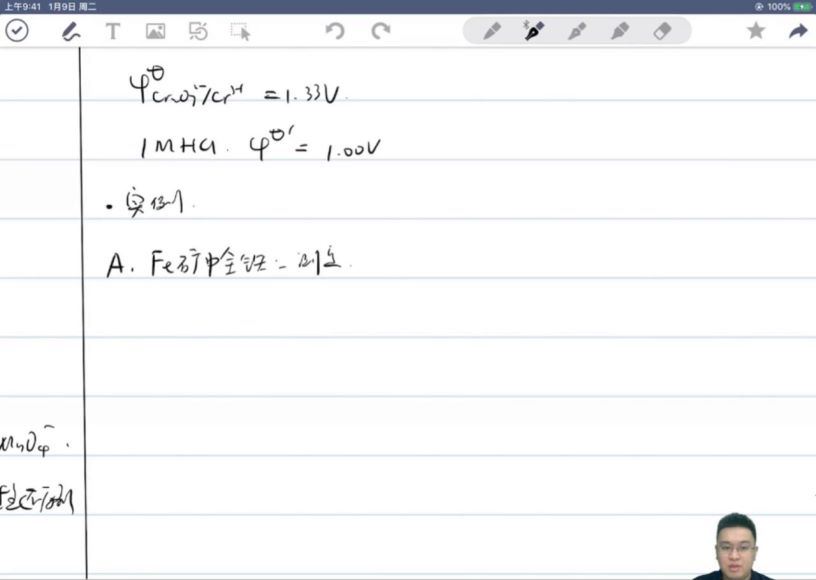 上午9:41 1月9日 周二
100%
T
φ^θ Cr₂O₇²⁻/Cr³⁺ = 1.33V.
1M HCl. φ^θ′ = 1.00V
• 实例.
A. Fe矿中全铁之测定.
MnO₄⁻.